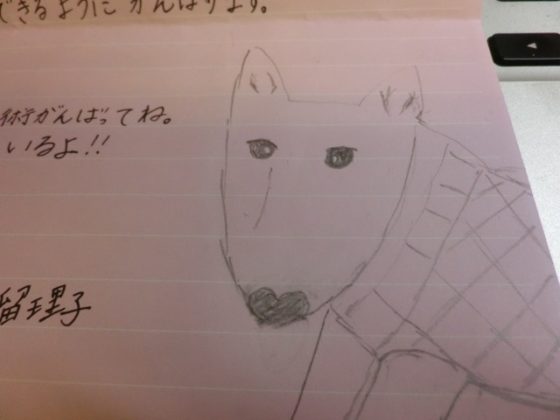 できるように がんばります。
術がんばってね。
いるよ!!
留理子